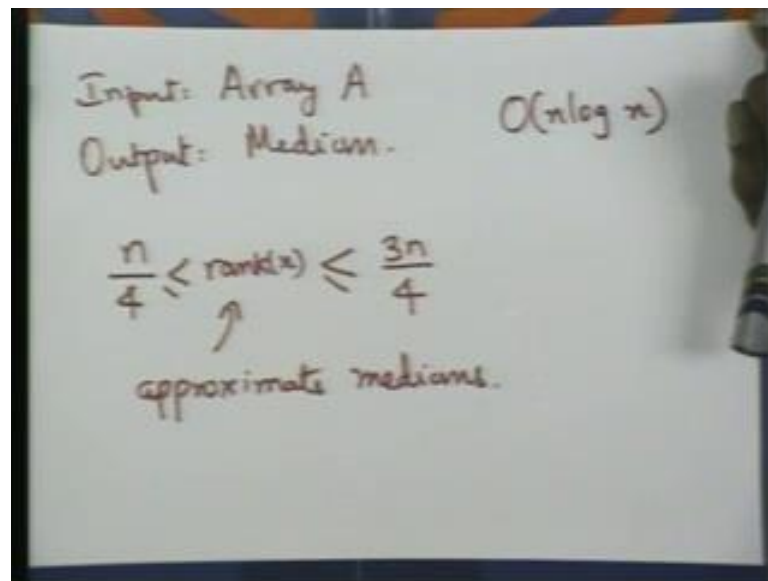 Input: Array A
O(nlog n)
Output: Median.
n/4 ≤ rank(x) ≤ 3n/4
approximate medians.